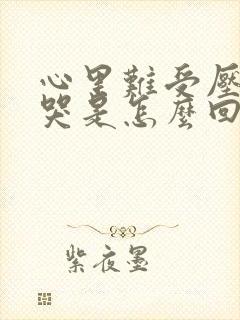 心里難受壓
哭是怎麼回
紫夜墨